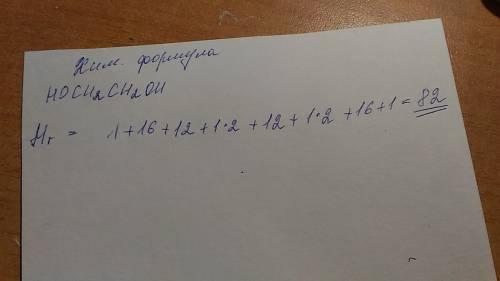 Хим. формула
HOCH2CH2OH
Mr = 1+16+12+1·2+12+1·2+16+1=82